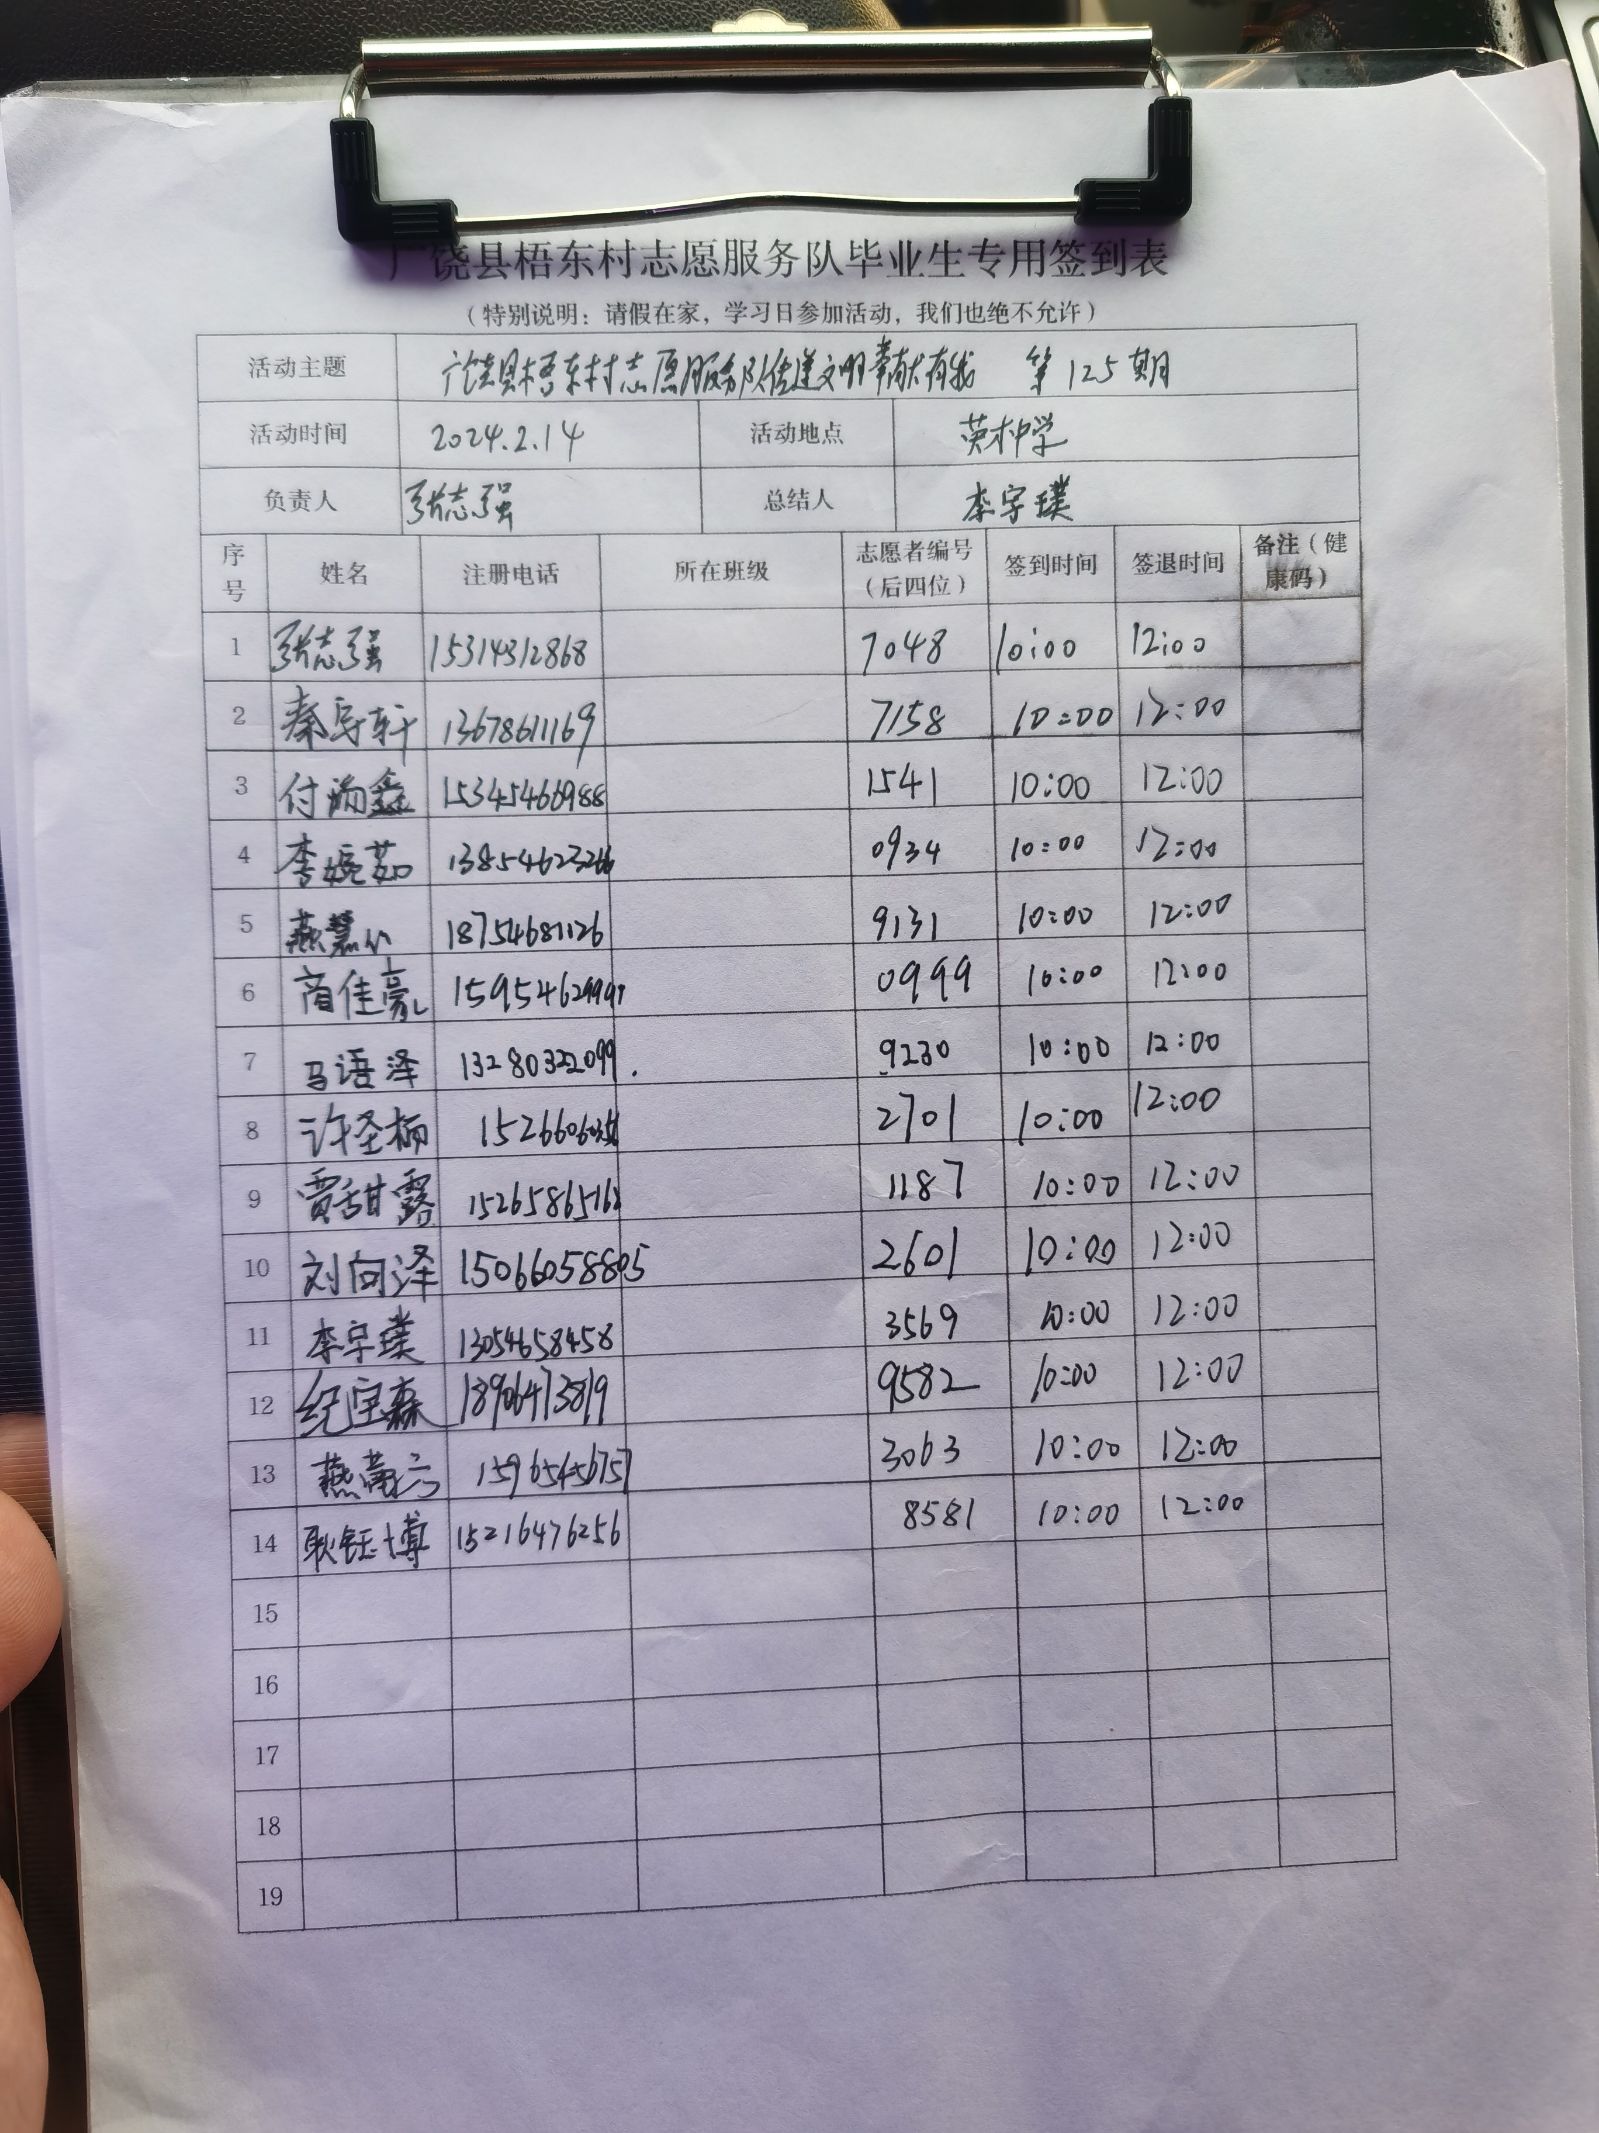 广饶县梧东村志愿服务队毕业生专用签到表
（特别说明：请假在家，学习日参加活动，我们也绝不允许）
活动主题 广饶县梧东村志愿服务队传递文明奉献有我 第125期
活动时间 2024.2.14 活动地点 英才中学
负责人 张志强 总结人 李宇璞
序号 姓名 注册电话 所在班级 志愿者编号（后四位） 签到时间 签退时间 备注（健康码）
1 张志强 15314312868 7048 10:00 12:00
2 秦导轩 13678611169 7158 10:00 12:00
3 付瀚鑫 15345466988 1541 10:00 12:00
4 李婉茹 13854623266 0934 10:00 12:00
5 燕慧 18754681126 9131 10:00 12:00
6 佳豪 0999 10:00 12:00
7 马语泽 13280322099 9230 10:00 12:00
8 许圣楠 2701 10:00 12:00
9 贾甜露 1187 10:00 12:00
10 刘向泽 15066058805 2601 10:00 12:00
11 李宇璞 13054658458 3569 10:00 12:00
12 纪宝森 18906473819 9582 10:00 12:00
13 燕 15965456757 3063 10:00 12:00
14 耿钰博 15216476256 8581 10:00 12:00
15
16
17
18
19